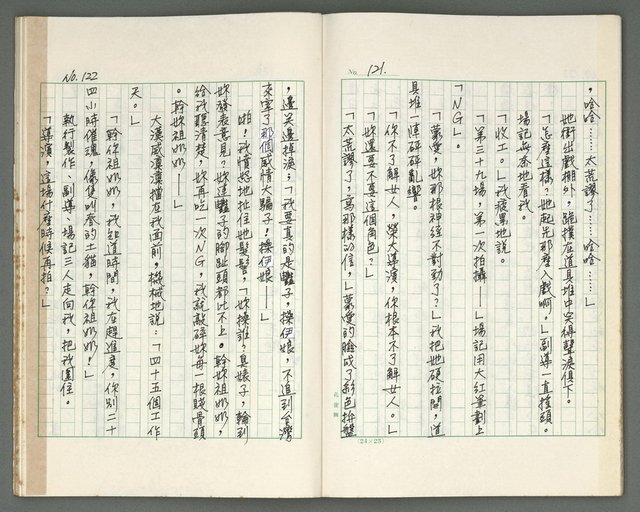 No. 121.
，哈哈……太荒謬了……哈哈……」
她衝出戲棚外，跪撲在道具堆中笑得聲淚俱下。
「怎麼這樣？她起先那麼入戲啊。」副導一直搖頭。
場記無奈地看我。
「收工。」我疲累地說。
「第三十九場，第一次拍攝——」場記用大紅筆劃上
「NG」。
「蒙愛，妳那根神經不對勁了？」我把她硬拉開，道
具堆一陣砰砰亂響。
「你不了解女人，榮大導演，你根本不了解女人。」
「妳還要不要這個角色？」
「太荒謬了，寫那樣的信，」蒙愛的臉成了彩色拚盤
(24×25)
No. 122
，邊笑邊掉淚：「我要真的是 子，操伊娘，不追到台灣
來宰了那個感情大騙子！操伊娘——」
啪！我憤怒地扯住她髮髻，「妳操誰？臭婊子，輪到
妳發表意見？妳連 子的腳趾頭都比不上。幹妳祖奶奶，
給我聽清楚，妳再吃一次NG，我就敲碎妳每一根賤骨頭
。幹妳祖奶奶——」
大漢威漢漢擋在我面前，機械地說：「四十五個工作
天。」
「幹你祖奶奶，我知道時間，我在趕進度，你別二十
四小時催魂，像隻叫春的土貓，幹你祖奶奶！」
執行製作、副導、場記三人走向我，把我圍住。
「導演，這場什麼時候再拍？」